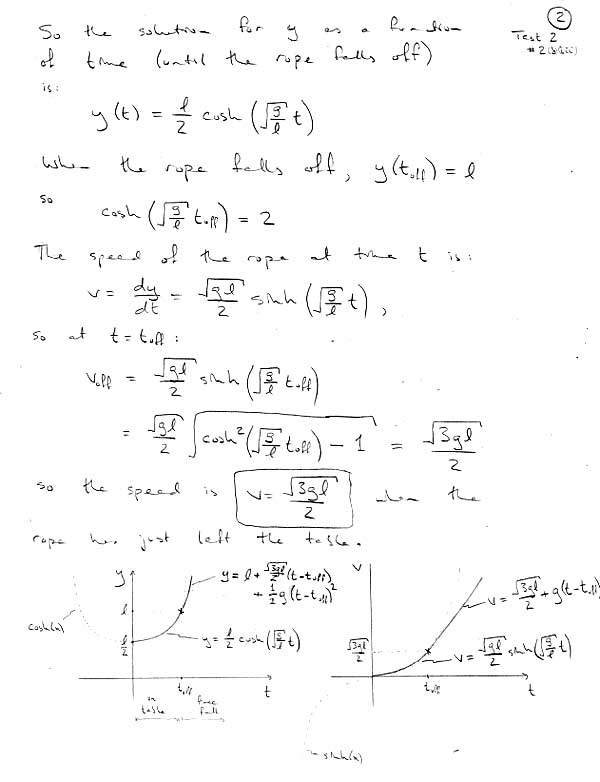 ②
So the solution for y as a function
Test 2
of time (until the rope falls off)
is:
y(t) = l/2 cosh (√(g/l) t)
When the rope falls off, y(t_off) = l
so
cosh (√(g/l) t_off) = 2
The speed of the rope at time t is:
v = dy/dt = √(gl)/2 sinh (√(g/l) t),
so at t = t_off:
v_off = √(gl)/2 sinh (√(g/l) t_off)
= √(gl)/2 √(cosh²(√(g/l) t_off) − 1) = √(3gl)/2
so the speed is v = √(3gl)/2 when the
rope has just left the table.
y
y = l + √(3gl)/2 (t−t_off)
+ 1/2 g(t−t_off)²
l
cosh(x)
l/2
y = l/2 cosh(√(g/l) t)
t_off
t
on table
free fall
v
v = √(3gl)/2 + g(t−t_off)
√(3gl)/2
v = √(gl)/2 sinh(√(g/l) t)
t_off
t
sinh(x)